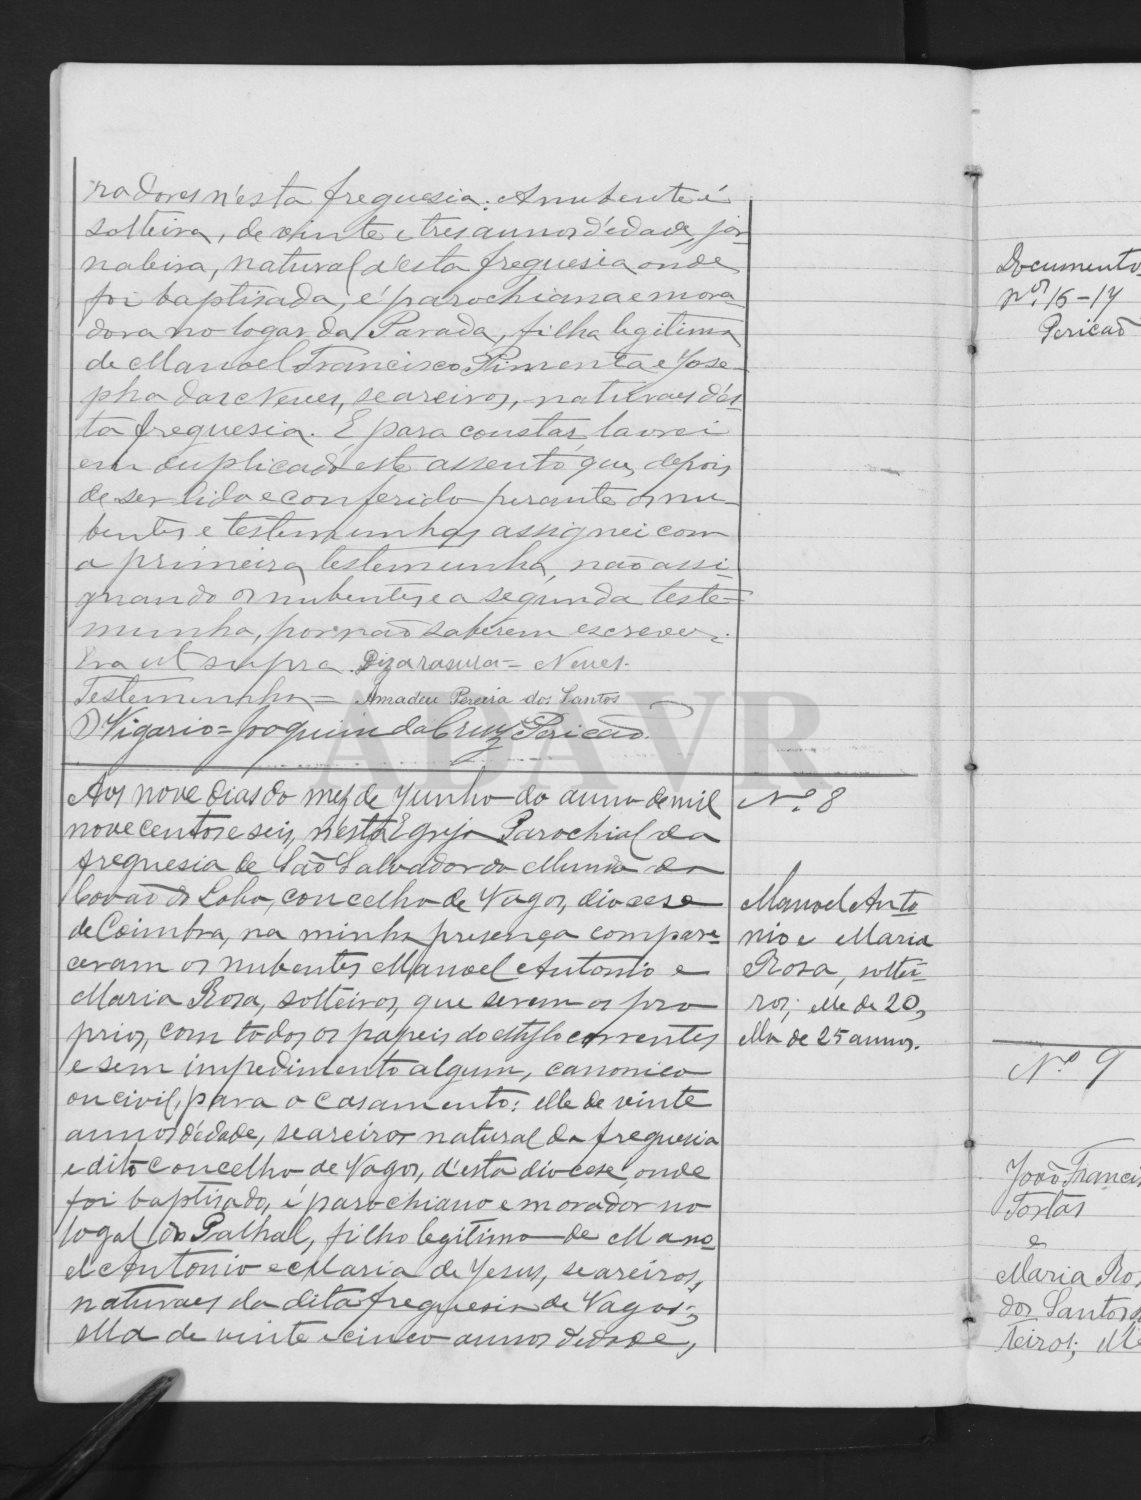 radores n'esta freguesia. A nubente é
solteira, de vinte e tres annos d'edade, jor-
naleira, natural d'esta freguesia onde
foi baptisada, é parochiana e mora-
dora no logar da Parada, filha legitima
de Manoel Francisco Pimenta e Jose-
pha das Neves, seareiros, naturaes d'es-
ta freguesia. E para constar lavrei
em duplicado este assento que, depois
de ser lido e conferido perante os nu-
bentes e testemunhas assignei com
a primeira testemunha, não assi-
gnando os nubentes e a segunda teste-
munha, por não saberem escrever.
Era ut supra. Diz a rasura = Neves.
Testemunha = Amadeu Pereira dos Santos
O Vigario = Joaquim da Cruz Pericão.
ADAVR
Aos nove dias do mez de Junho do anno de mil
novecentos e seis, n'esta Egreja Parochial da
freguesia de São Salvador do Mundo da
Covão do Lobo, concelho de Vagos, diocese
de Coimbra, na minha presença compare-
ceram os nubentes Manoel Antonio e
Maria Rosa, solteiros, que serem os pro
prios, com todos os papeis do estylo correntes
e sem impedimento algum, canonico
ou civil, para o casamento: elle de vinte
annos d'edade, seareiro natural da freguesia
e dito concelho de Vagos, d'esta diocese, onde
foi baptisado, é parochiano e morador no
logal do Palhal, filho legitimo de Mano-
el Antonio e Maria de Jesus, seareiros,
naturaes da dita freguesia de Vagos;
ella de vinte e cinco annos d'edade,
Nº 8
Manoel Anto
nio e Maria
Rosa, soltei-
ros; elle de 20,
ella de 25 annos.
Documentos
nºs 16-17
Pericão
Nº 9
João Francis
Tortas
e
Maria Ros
dos Santos
teiros; elle